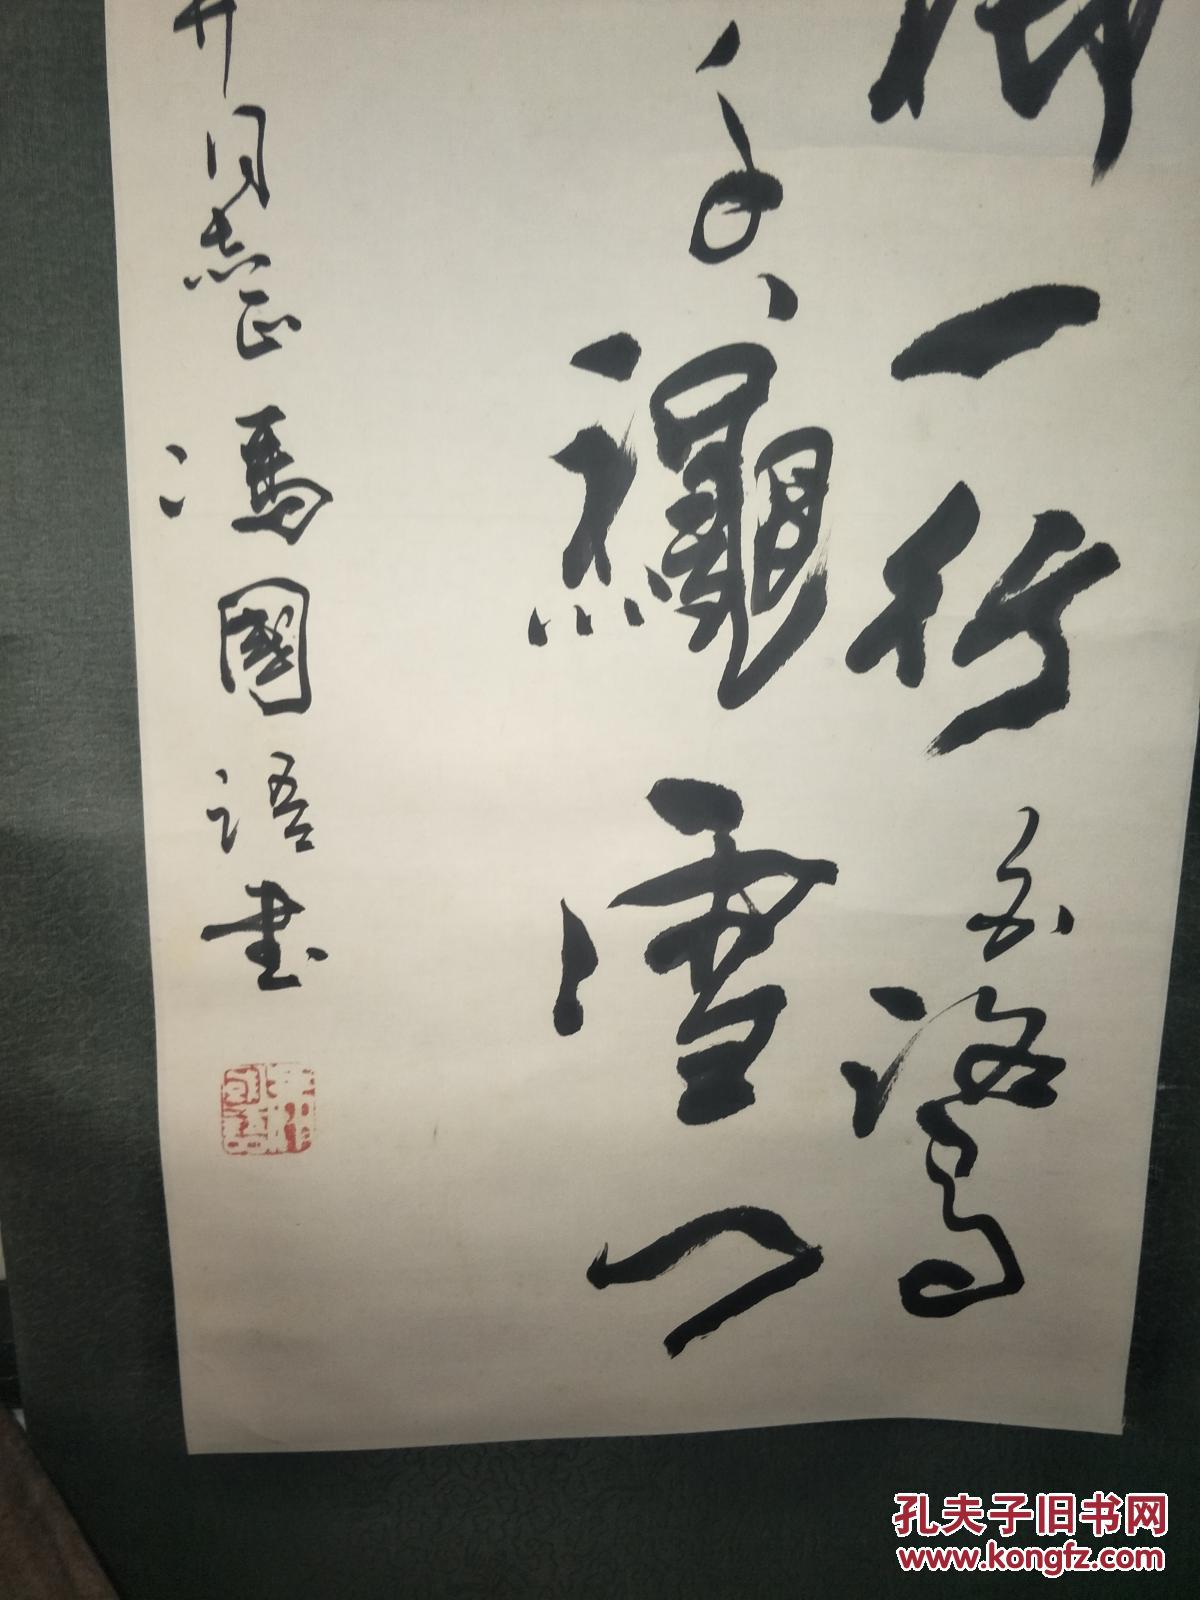 柳一行白鷺
千龝雪門
同志正 馮國語書
孔夫子旧书网
www.kongfz.com